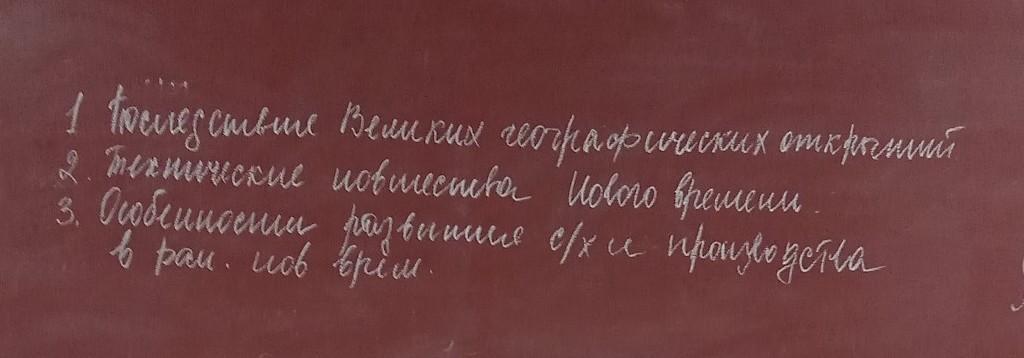 1 Последствие Великих географических открытий
2. Технические новшества Нового времени.
3. Особенности развития с/х и производства
в ран. нов врем.